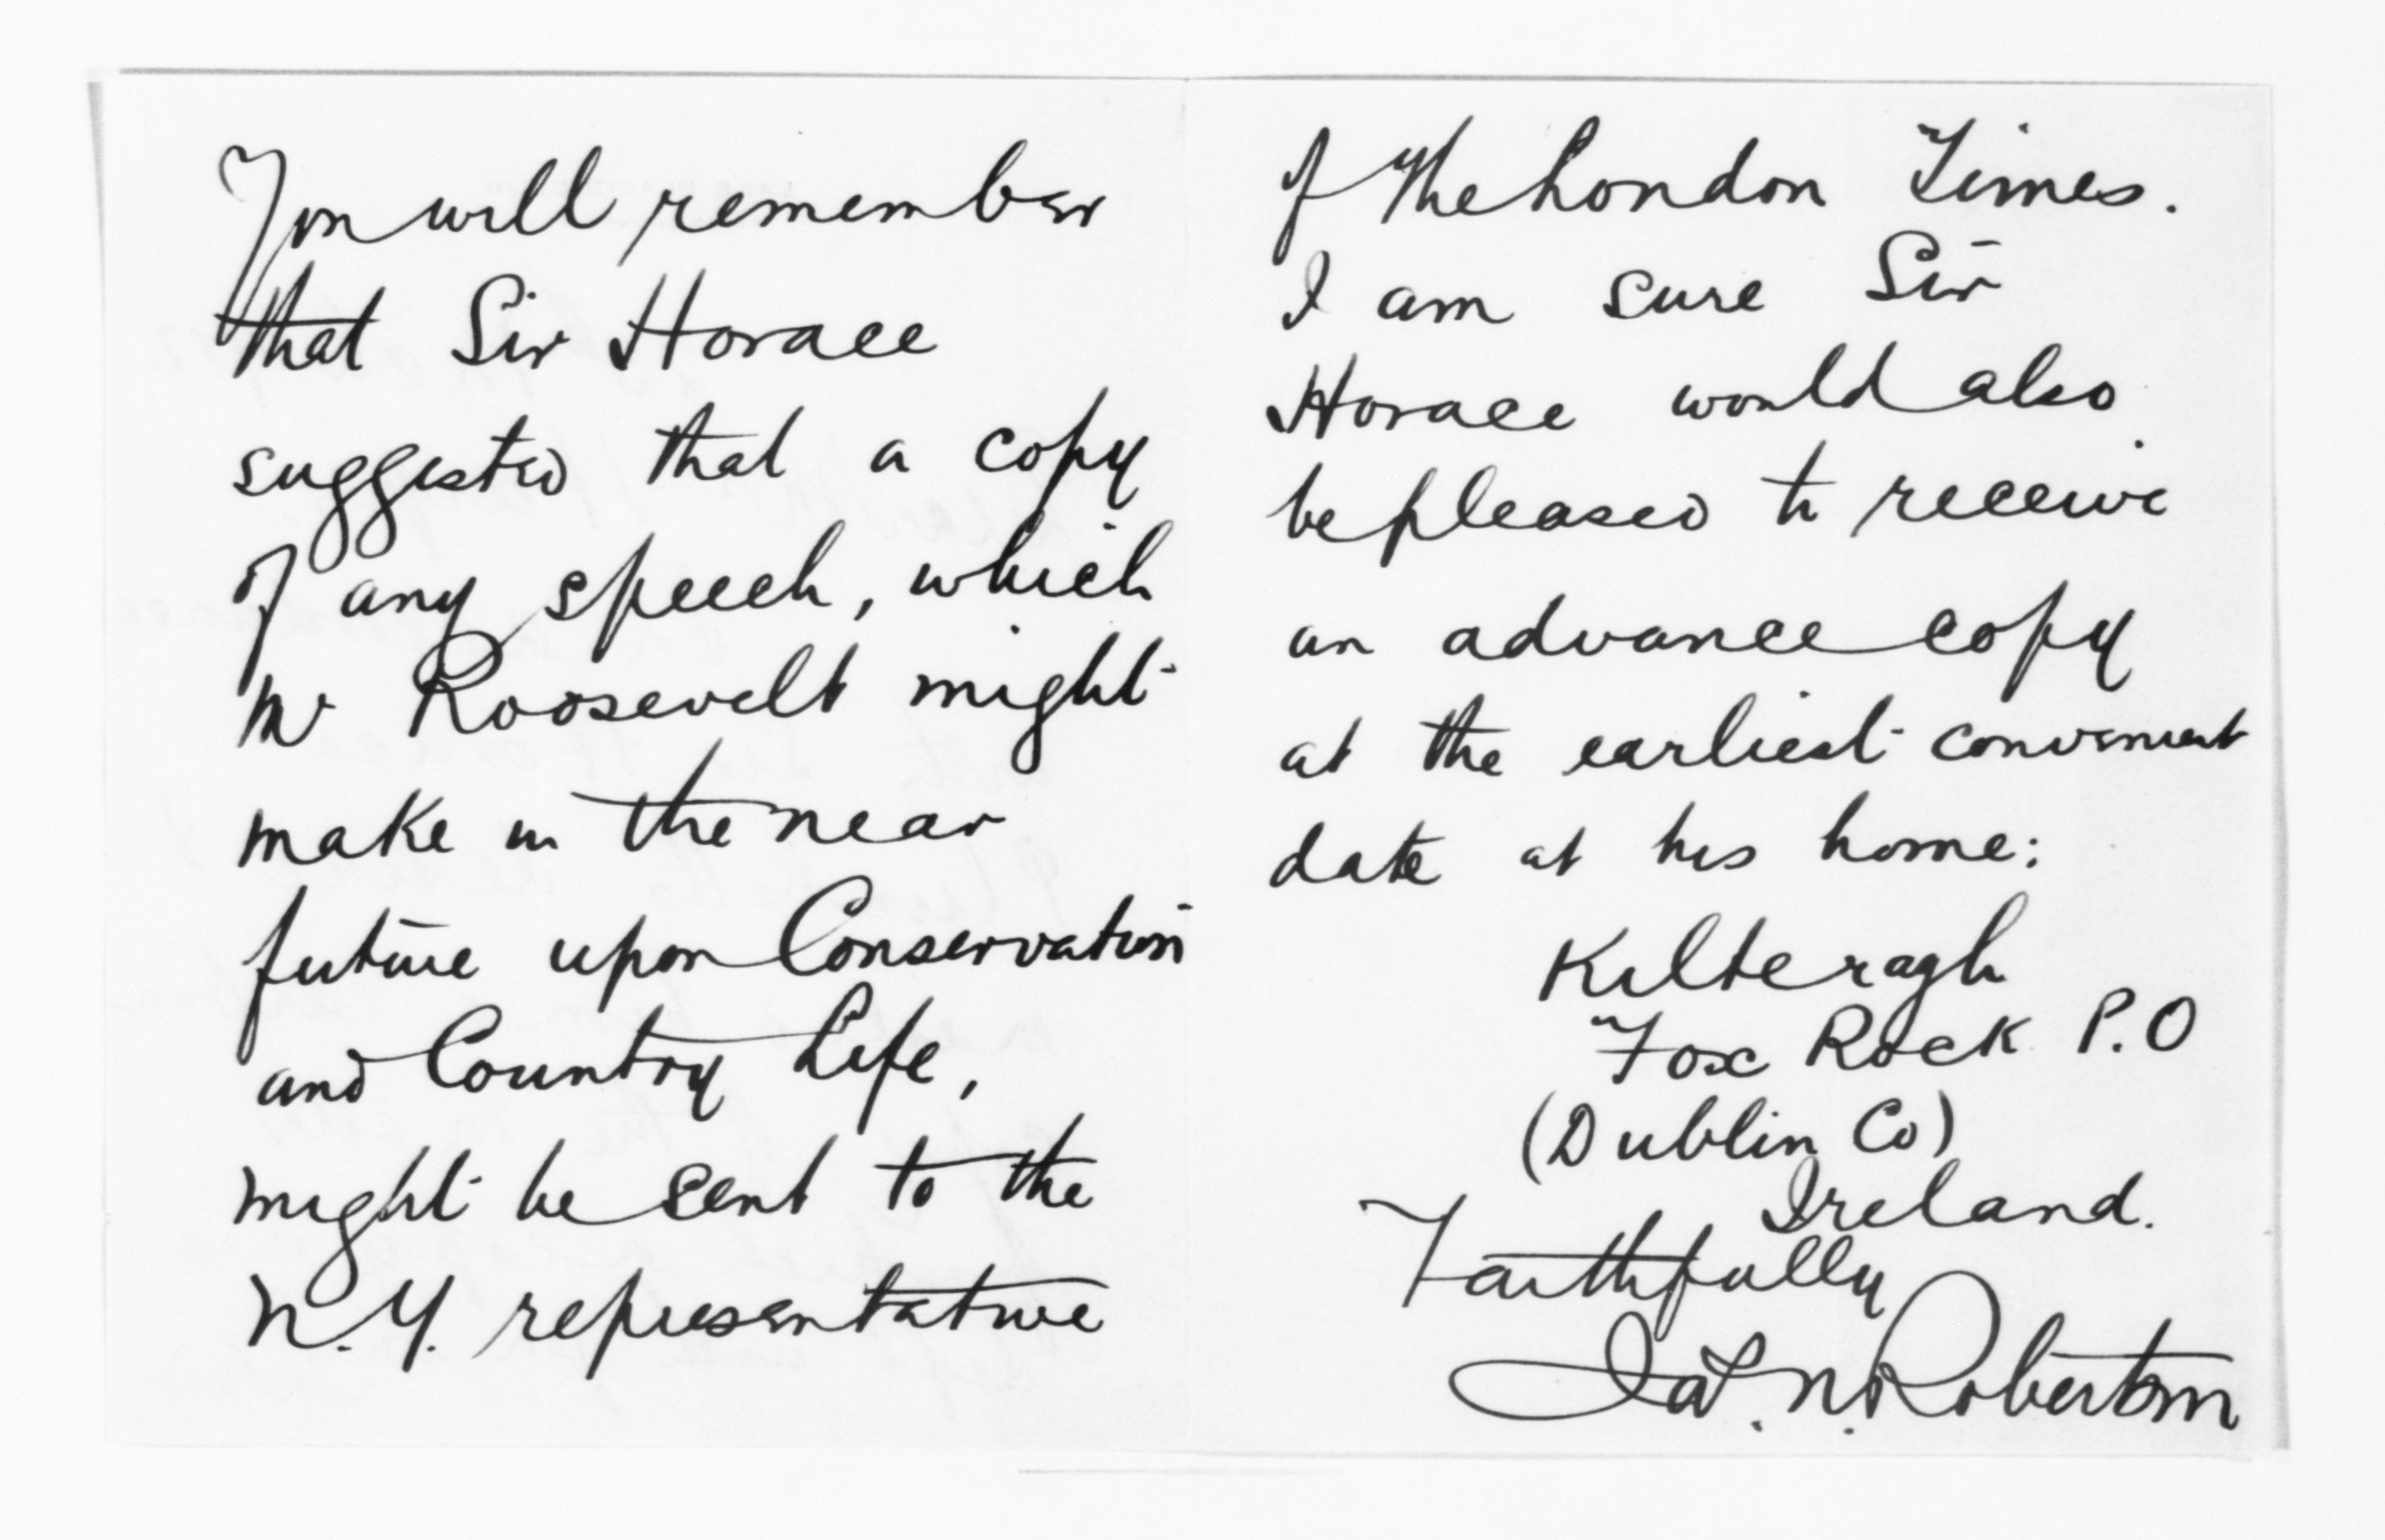 You will remember
that Sir Horace
suggested that a copy
of any speech, which
Mr Roosevelt might
make in the near
future upon Conservation
and Country Life,
might be sent to the
N.Y. representative
of The London Times.
I am sure Sir
Horace would also
be pleased to receive
an advance copy
at the earliest convenient
date at his home:
Kilteragh
Fox Rock P.O
(Dublin Co)
Ireland.
Faithfully
Jas. N. Robertson